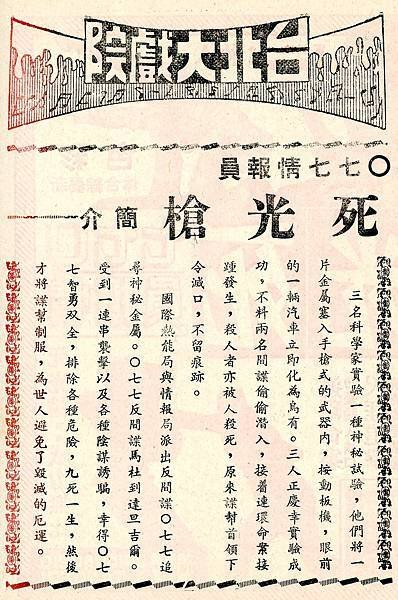 台北大戲院
〇七七情報員
死光槍簡介
三名科學家實驗一種神秘試驗，他們將一
片金屬塞入手槍式的武器內，按動板機，眼前
的一輛汽車立即化為烏有。三人正慶幸實驗成
功，不料兩名間諜偷偷潛入，接着連環命案接
踵發生，殺人者亦被人殺死，原來諜幫首領下
令滅口，不留痕跡。
國際熱能局與情報局派出反間諜〇七七追
尋神秘金屬。〇七七反間諜馬杜到達旦吉爾。
受到一連串襲擊以及各種陰謀誘騙，幸得〇七
七智勇双全，排除各種危險，九死一生，然後
才將諜幫制服，為世人避免了毀滅的厄運。